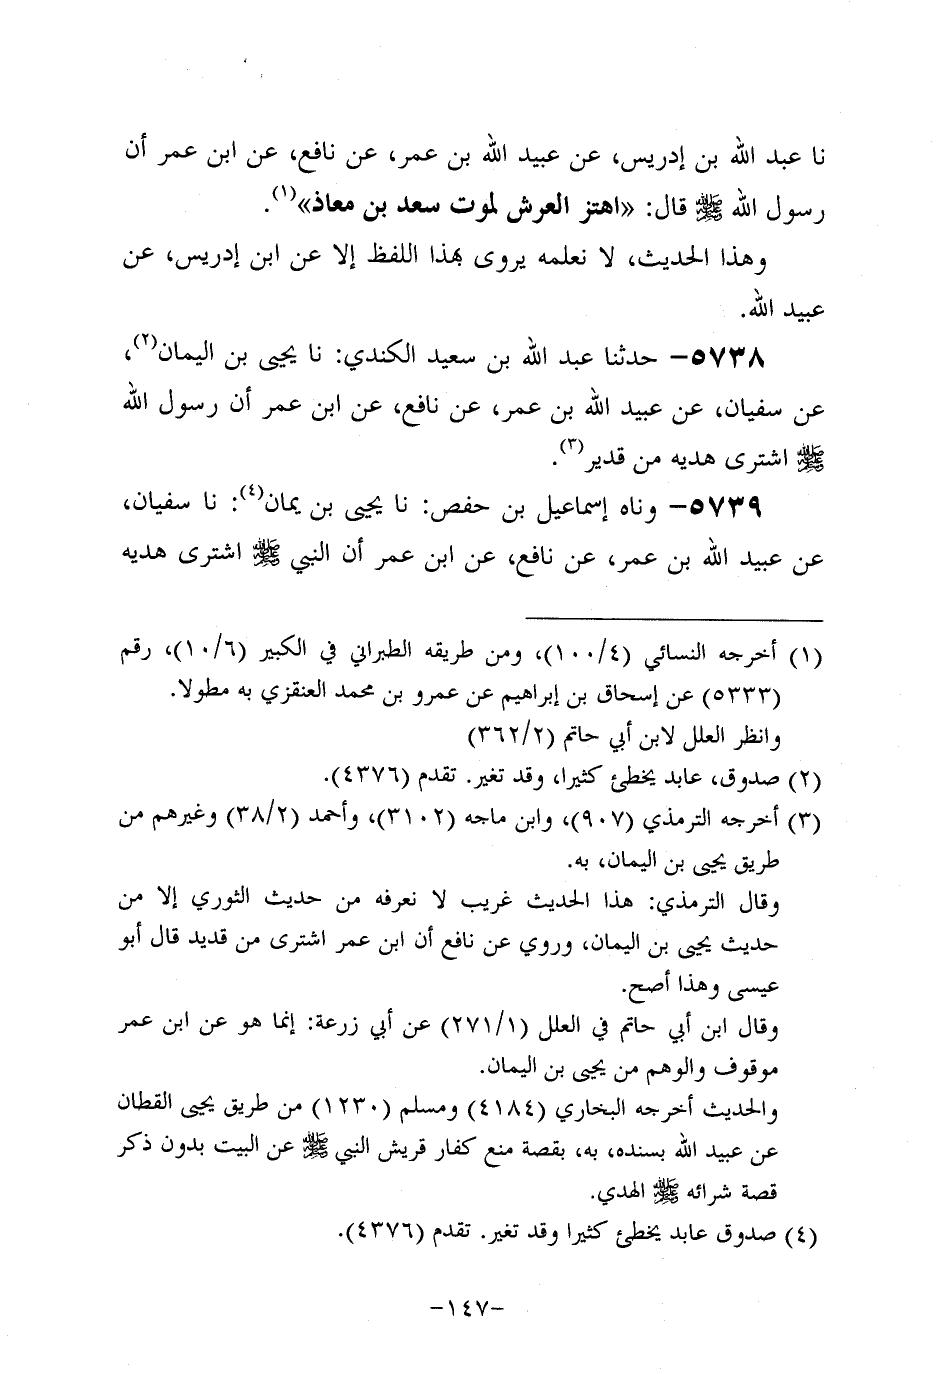 نا عبد الله بن إدريس، عن عبيد الله بن عمر، عن نافع، عن ابن عمر أن
رسول الله ﷺ قال: «اهتز العرش لموت سعد بن معاذ»(١).
وهذا الحديث، لا نعلمه يروى بهذا اللفظ إلا عن ابن إدريس، عن
عبيد الله.
٥٧٣٨- حدثنا عبد الله بن سعيد الكندي: نا يحيى بن اليمان(٢)،
عن سفيان، عن عبيد الله بن عمر، عن نافع، عن ابن عمر أن رسول الله
ﷺ اشترى هديه من قدير(٣).
٥٧٣٩- وناه إسماعيل بن حفص: نا يحيى بن يمان(٤): نا سفيان،
عن عبيد الله بن عمر، عن نافع، عن ابن عمر أن النبي ﷺ اشترى هديه
(١) أخرجه النسائي (١٠٠/٤)، ومن طريقه الطبراني في الكبير (١٠/٦)، رقم
(٥٣٣٣) عن إسحاق بن إبراهيم عن عمرو بن محمد العنقزي به مطولا.
وانظر العلل لابن أبي حاتم (٣٦٢/٢)
(٢) صدوق، عابد يخطئ كثيرا، وقد تغير. تقدم (٤٣٧٦).
(٣) أخرجه الترمذي (٩٠٧)، وابن ماجه (٣١٠٢)، وأحمد (٣٨/٢) وغيرهم من
طريق يحيى بن اليمان، به.
وقال الترمذي: هذا الحديث غريب لا نعرفه من حديث الثوري إلا من
حديث يحيى بن اليمان، وروي عن نافع أن ابن عمر اشترى من قديد قال أبو
عيسى وهذا أصح.
وقال ابن أبي حاتم في العلل (٢٧١/١) عن أبي زرعة: إنما هو عن ابن عمر
موقوف والوهم من يحيى بن اليمان.
والحديث أخرجه البخاري (٤١٨٤) ومسلم (١٢٣٠) من طريق يحيى القطان
عن عبيد الله بسنده، به، بقصة منع كفار قريش النبي ﷺ عن البيت بدون ذكر
قصة شرائه ﷺ الهدي.
(٤) صدوق عابد يخطئ كثيرا وقد تغير. تقدم (٤٣٧٦).
-١٤٧-